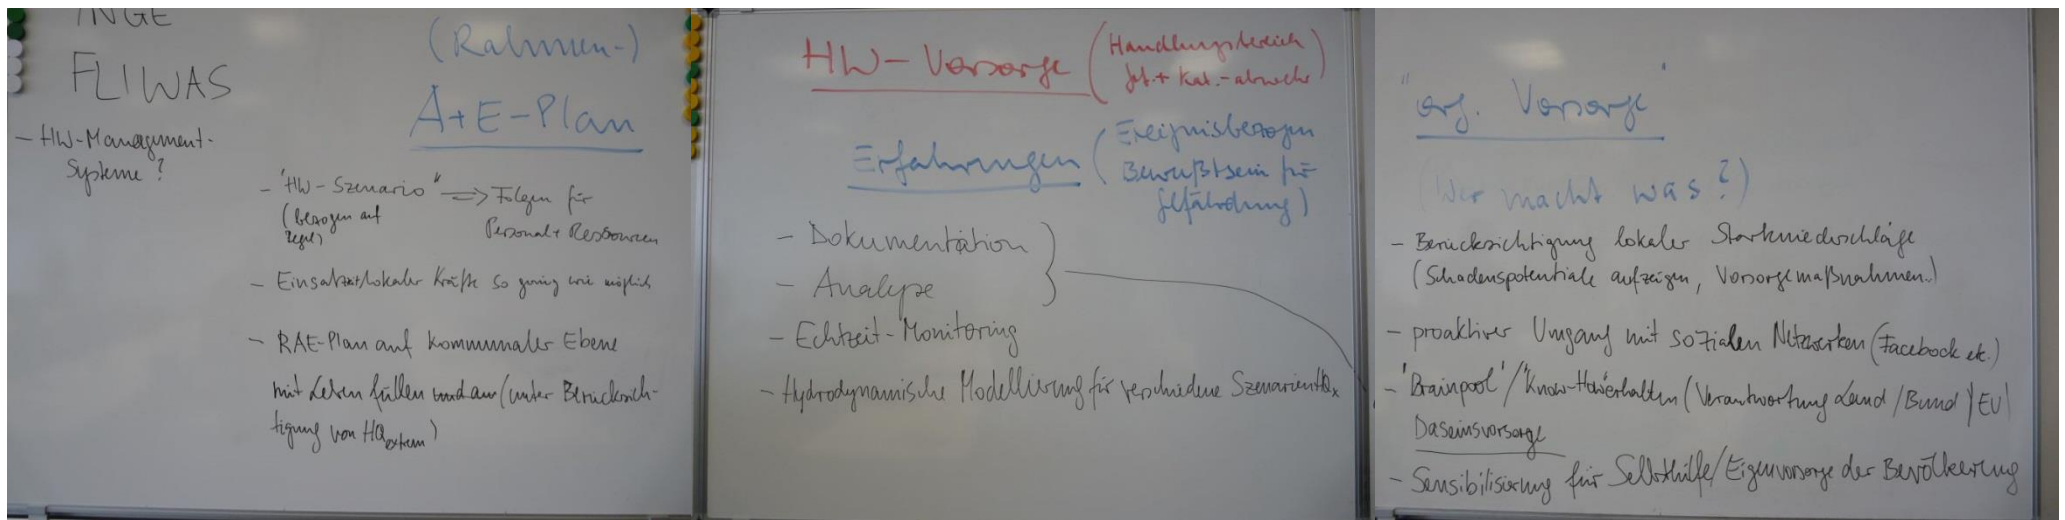 INGE
FLIWAS
- HW-Management-
Systeme?
(Rahmen-)
A+E-Plan
- "HW-Szenario" => Folgen für
(bezogen auf
Pegel)
Personal + Ressourcen
- Einsatz lokaler Kräfte so gering wie möglich
- RAE-Plan auf kommunaler Ebene
mit Leben füllen (unter Berücksich-
tigung von HQextrem)
HW-Vorsorge (Handlungsbereich
Gef.+ Kat.-abwehr)
Erfahrungen (Ereignisbezogen
Bewußtsein für
Gefährdung)
- Dokumentation
- Analyse
- Echtzeit-Monitoring
- Hydrodynamische Modellierung für verschiedene Szenarien HQx
"org. Vorsorge"
(Wer macht was?)
- Berücksichtigung lokaler Starkniederschläge
(Schadenspotentiale aufzeigen, Vorsorgemaßnahmen..)
- proaktiver Umgang mit sozialen Netzwerken (Facebook etc.)
- "Brainpool"/"Know-How" erhalten (Verantwortung Land/Bund/EU)
Daseinsvorsorge
- Sensibilisierung für Selbsthilfe/Eigenvorsorge der Bevölkerung